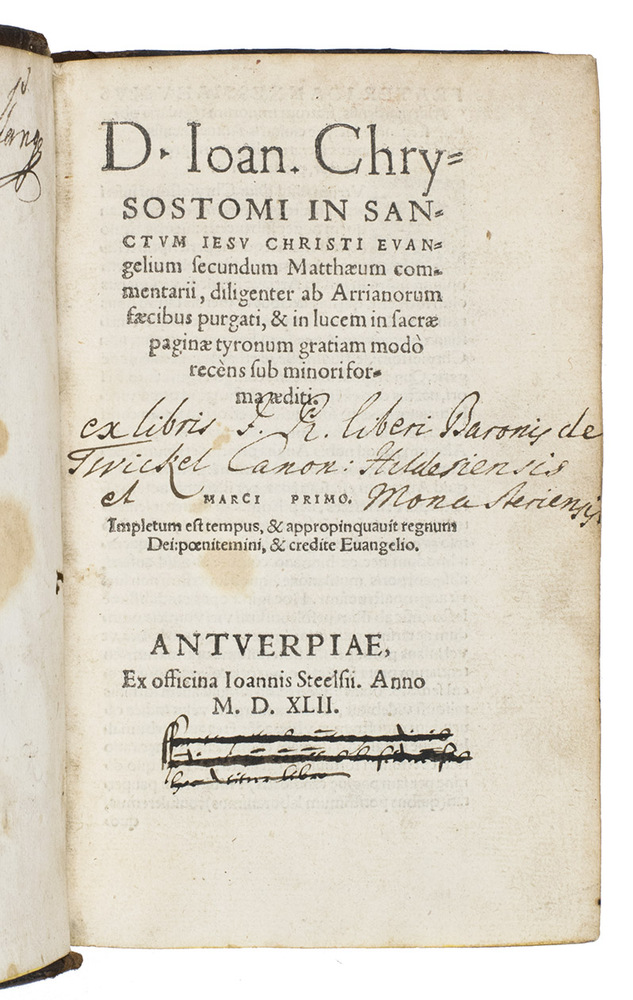 D. Ioan. Chry=
SOSTOMI IN SAN=
CTVM IESV CHRISTI EVAN=
gelium ſecundum Matthæum com=
mentarii, diligenter ab Arrianorum
fæcibus purgati, & in lucem in ſacræ
paginæ tyronum gratiam modò
recèns ſub minori for=
ma æditi.
ex libris F. R. liberi Baronis de
Twickel Canon: Hildesiensis
et MARCI PRIMO. Monasteriensis
Impletum eſt tempus, & appropinquauit regnum
Dei:pœnitemini, & credite Euangelio.
ANTVERPIAE,
Ex officina Ioannis Steelſii. Anno
M. D. XLII.